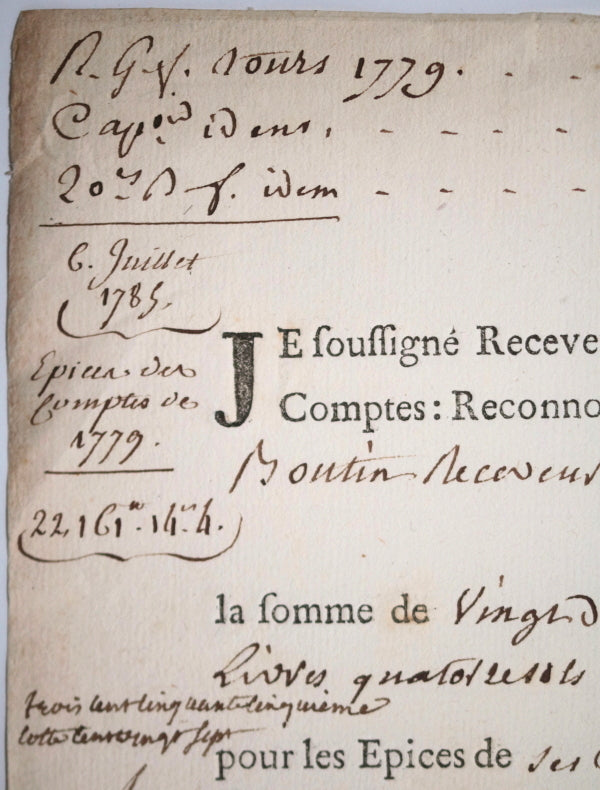 R. G. f. Tours 1779. - -
Cap.on idem, - - - -
20.es R f. idem - - - -
6. Juillet
1785.
JE souſſigné Receve
Epices des
Comptes de
Comptes : Reconno
1779.
Boutin Receveur
22,161.# 14.s 4.
la ſomme de Vingt d
Livres quatorze sols
trois cent cinquante cinquieme
cotte cent vingt sept
pour les Epices de ses